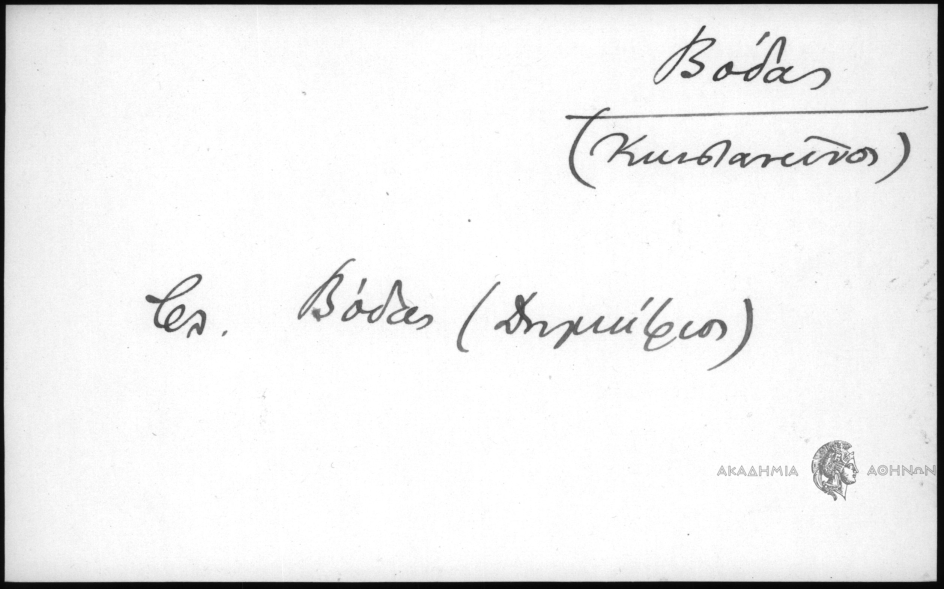 Βόδας
(Κωνσταντῖνος)
βλ. Βόδας (Δημήτριος)
ΑΚΑΔΗΜΙΑ ΑΘΗΝΩΝ